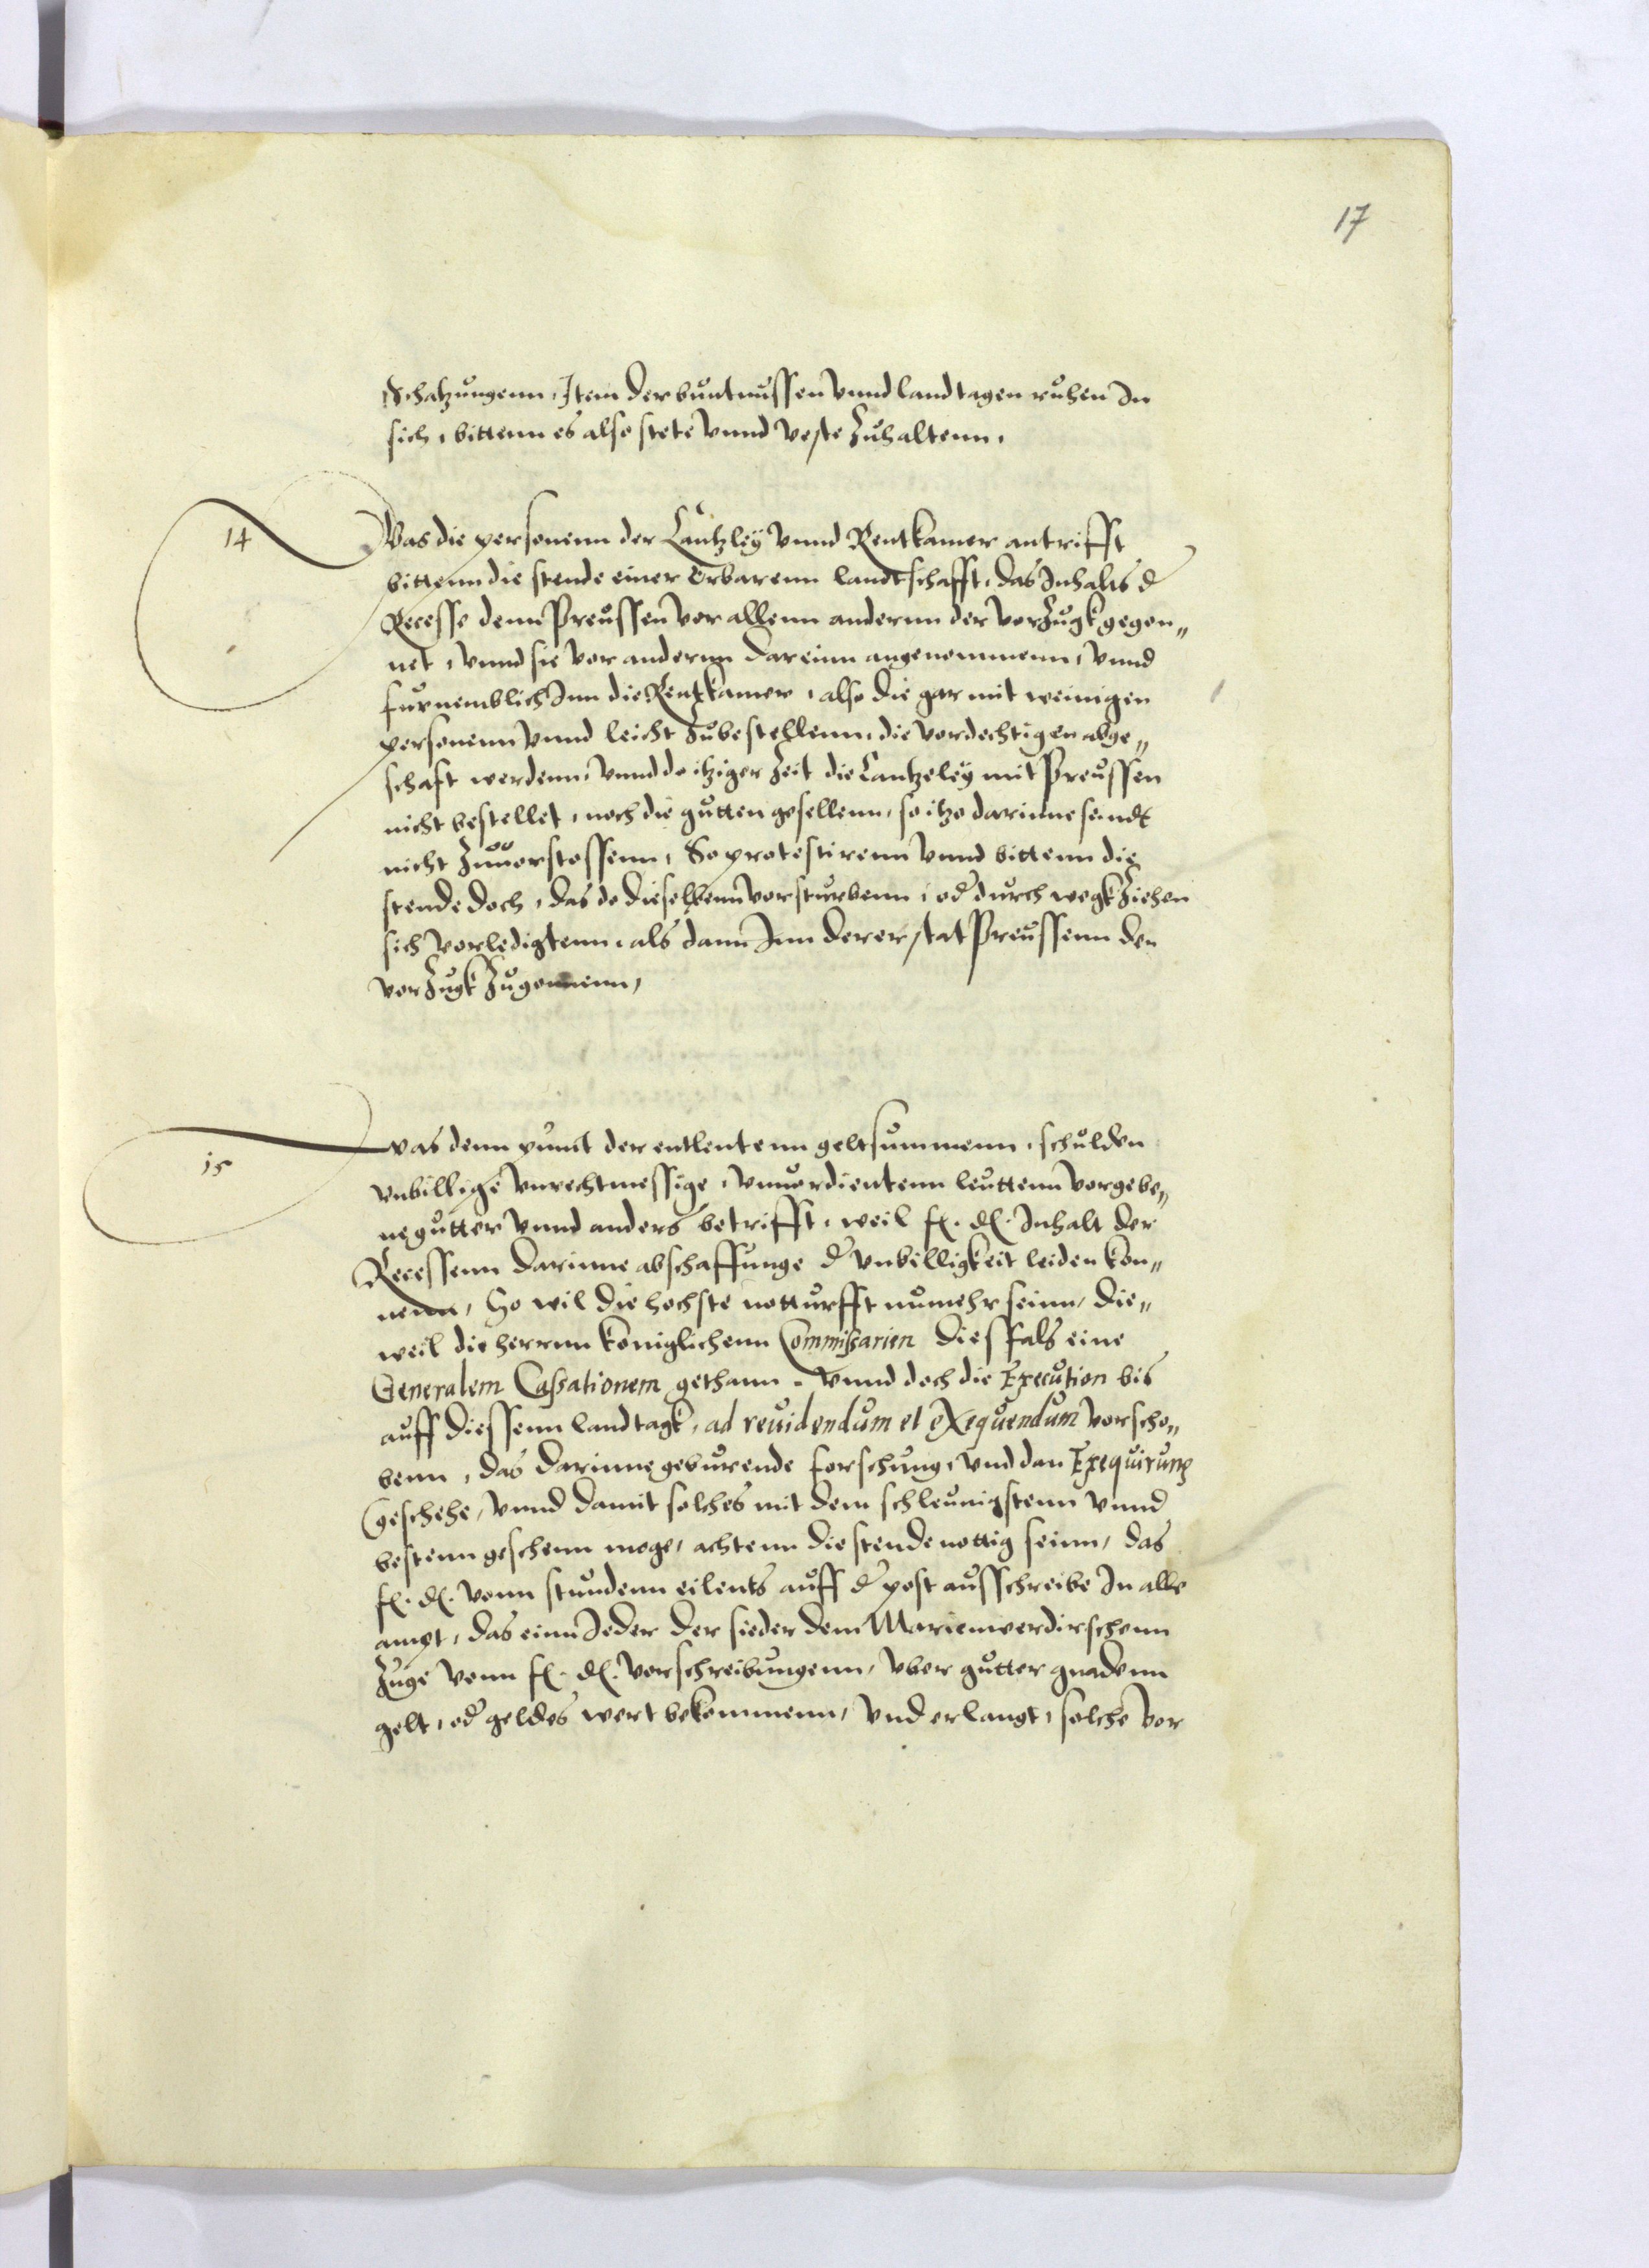 17
Schatzungenn, Item der buntnussen vnnd landtagen ruhen In
sich, bittenn es also stete vnnd veste Zuhaltenn.
14
Was die personenn der Cantzley vnnd Rentkamer antrifft
bittenn die stende einer Erbarenn landtschafft, das Inhalts d
Recesse denn Preussen vor allenn andernn der vorZugk gegon„
net, vnnd sie vor andernn dareinn angenommenn, vnnd
furnemblich Inn die Rentkamer, also die gar mit weinigen
personenn vnnd leicht Zubestellenn, die vordechtigen abge„
schaft werdenn, vnnd do itziger Zeit die Cantzeley mit Preussen
nicht bestellet, noch die gutten gesellenn, so itzo darinne seindt
nicht Zuuorstossenn, So protestirenn vnnd bittenn die
stende doch, das do dieselbenn vorsturbenn, od durch wegk Ziehen
sich vorledigtenn, als dann Inn derer stat Preussenn den
vorZugk Zugonnenn,
15
was denn punct der entlentenn geltsummenn, schulden
vnbillige vnrechtmessige, vnuordientenn leuttenn vorgebe„
ne gutter vnnd anders betrifft, weil f. d. Inhalt der
Recessenn darinne abschaffunge d vnbilligkeit leiden kon„
nenn, So wil die hochste notturfft numehr seinn, die„
weil die herrnn koniglichenn Commissarien diesfals eine
Generalem Cassationem gethann. vnnd doch die Execution bis
auff diessenn landtagk, ad reuidendum et exequendum vorscho„
benn, das darinne geburende forschung, vnd dan Exequirung
geschehe, vnnd damit solches mit dem schleunigstenn vnnd
bestenn geschenn moge, achtenn die stende nottig seinn, das
f. d. vonn stundenn eilents auff d post ausschreibe In alle
ampt, das einn Ieder der sieder dem Marienwerdirschenn
Zuge vonn f. d. vorschreibungenn, vber gutter gnadenn
gelt, od geldes wert bekommenn, vnd erlangt, solche vor